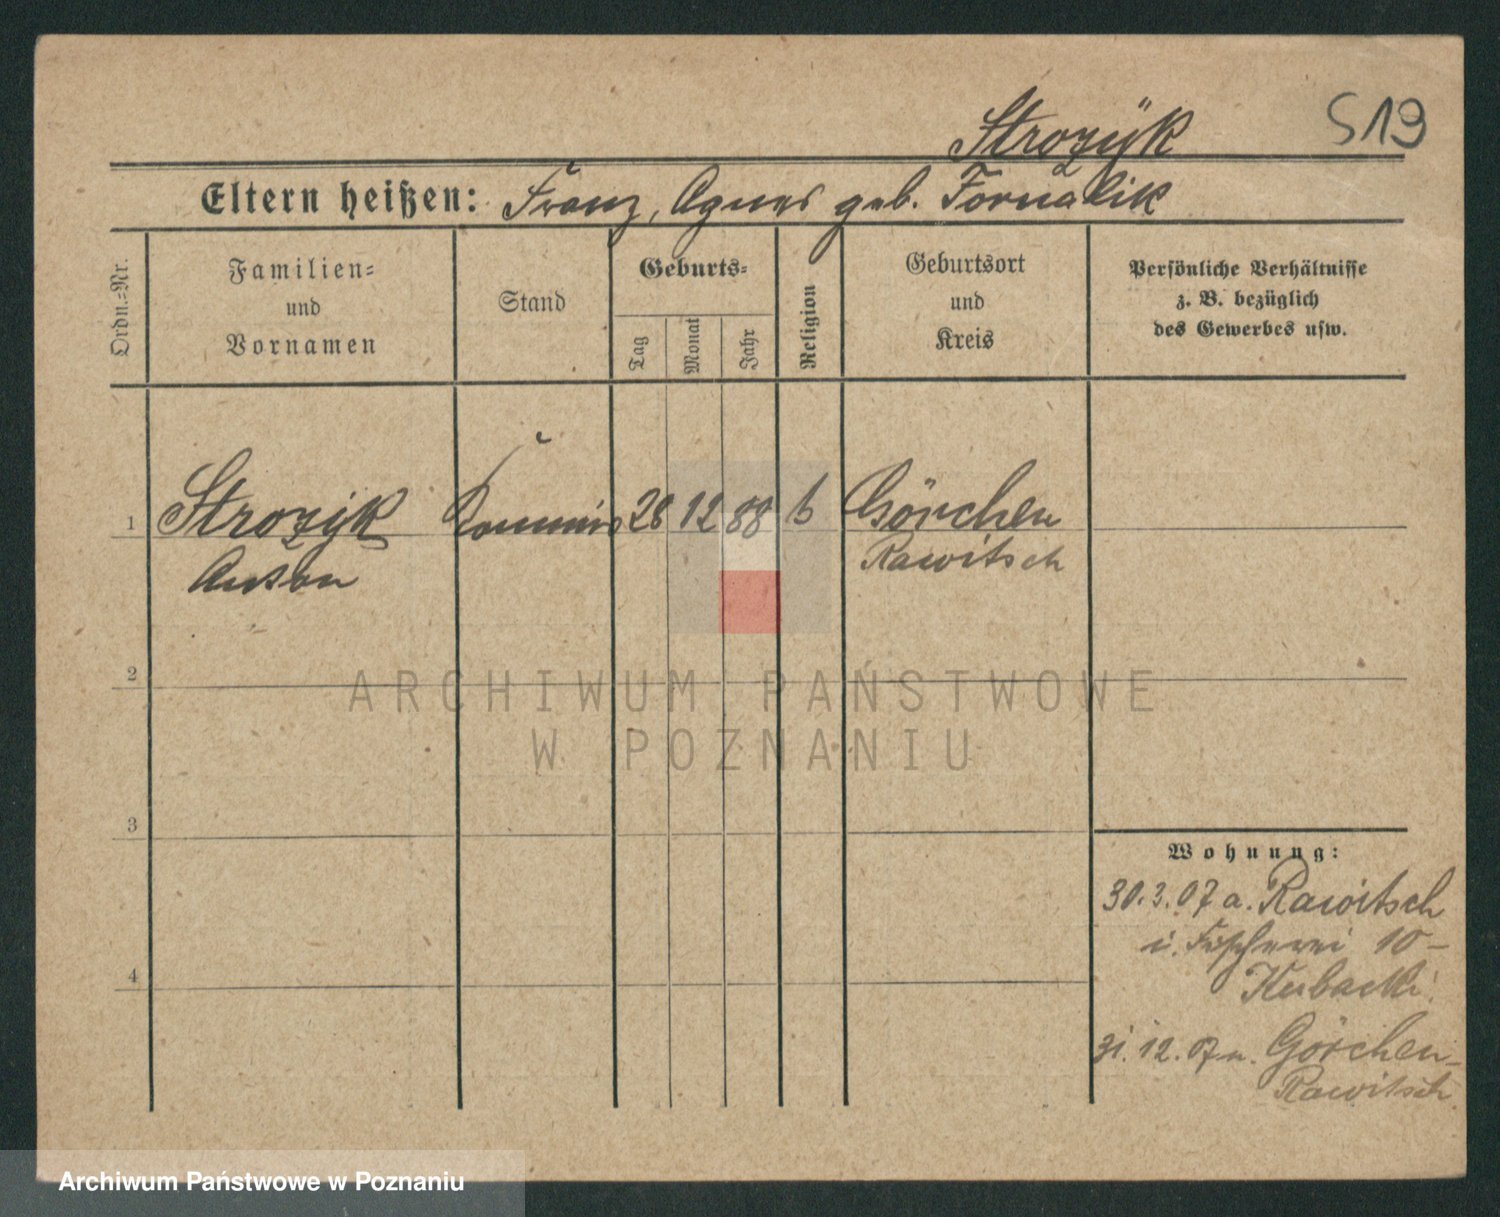 S19
Strozyk
Eltern heißen: Franz, Agnes geb. Fornalik
Ordn.=Nr.
Familien=
und
Vornamen
Stand
Geburts=
Tag
Monat
Jahr
Religion
Geburtsort
und
Kreis
Persönliche Verhältnisse
z. B. bezüglich
des Gewerbes usw.
1 Strozyk Kommis 28 12 88 Görchen
Anton Rawitsch
2
3
4
Wohnung:
30.3.07 a. Rawitsch
i. 10-
Kubacki.
31.12.07 n. Görchen-
Rawitsch
ARCHIWUM PAŃSTWOWE
W POZNANIU
Archiwum Państwowe w Poznaniu